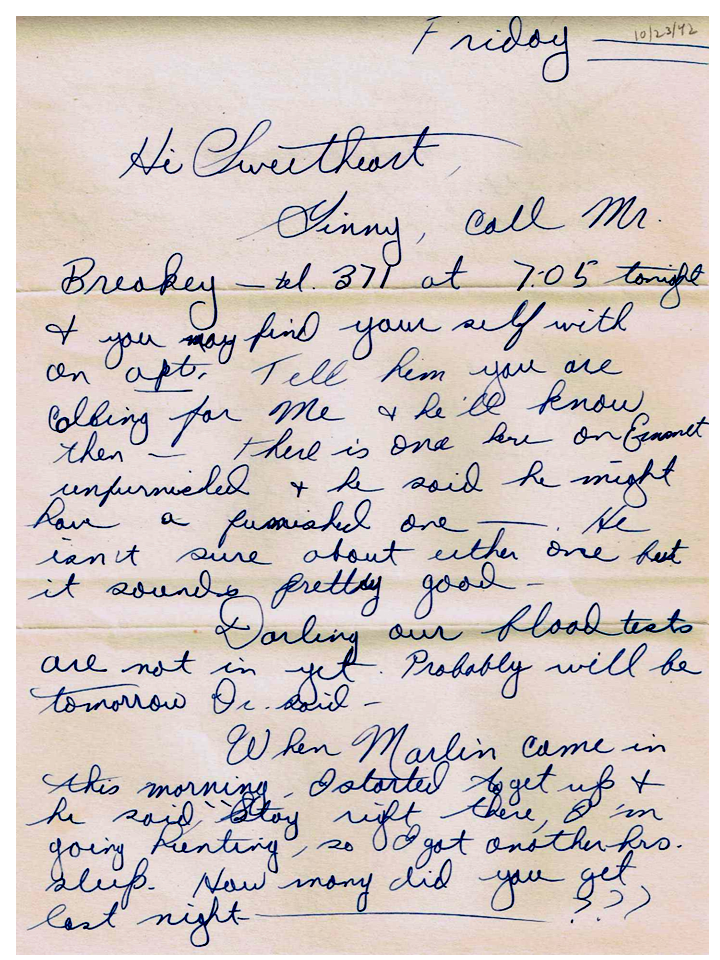 Friday
10/23/42
Hi Sweetheart,
Ginny, call Mr.
Breakey — tel. 371 at 7:05 tonight
& you may find your self with
an apt. Tell him you are
calling for me & he'll know
then — there is one here on Emmet
unfurnished & he said he might
have a furnished one — . He
isn't sure about either one but
it sounds pretty good —
Darling our blood tests
are not in yet. Probably will be
tomorrow Dr. said —
When Marlin came in
this morning, I started to get up &
he said, "Stay right there, I'm
going hunting, so I got another hrs.
sleep. How many did you get
last night — ???